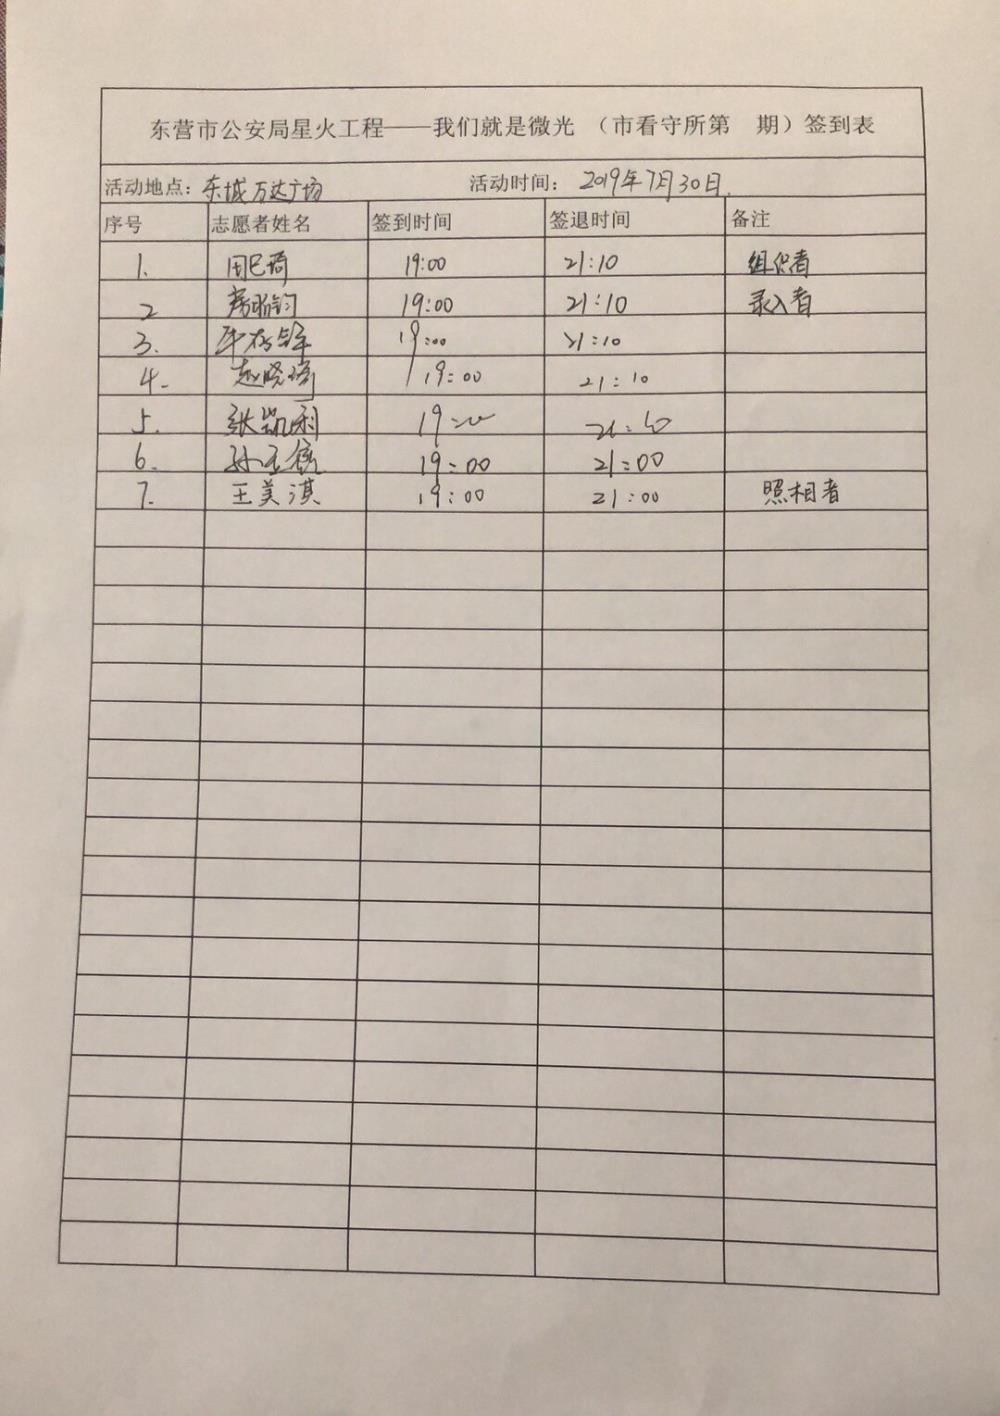 东营市公安局星火工程——我们就是微光 （市看守所第 期）签到表
活动地点：东城万达广场 活动时间： 2019年7月30日.
序号 志愿者姓名 签到时间 签退时间 备注
1. 19:00 21:10 组织者
2 19:00 21:10 录入者
3. 19:00 21:10
4. 赵晓琦 19:00 21:10
5. 张凯利 19:00 21:10
6. 19:00 21:00
7. 王美淇 19:00 21:00 照相者